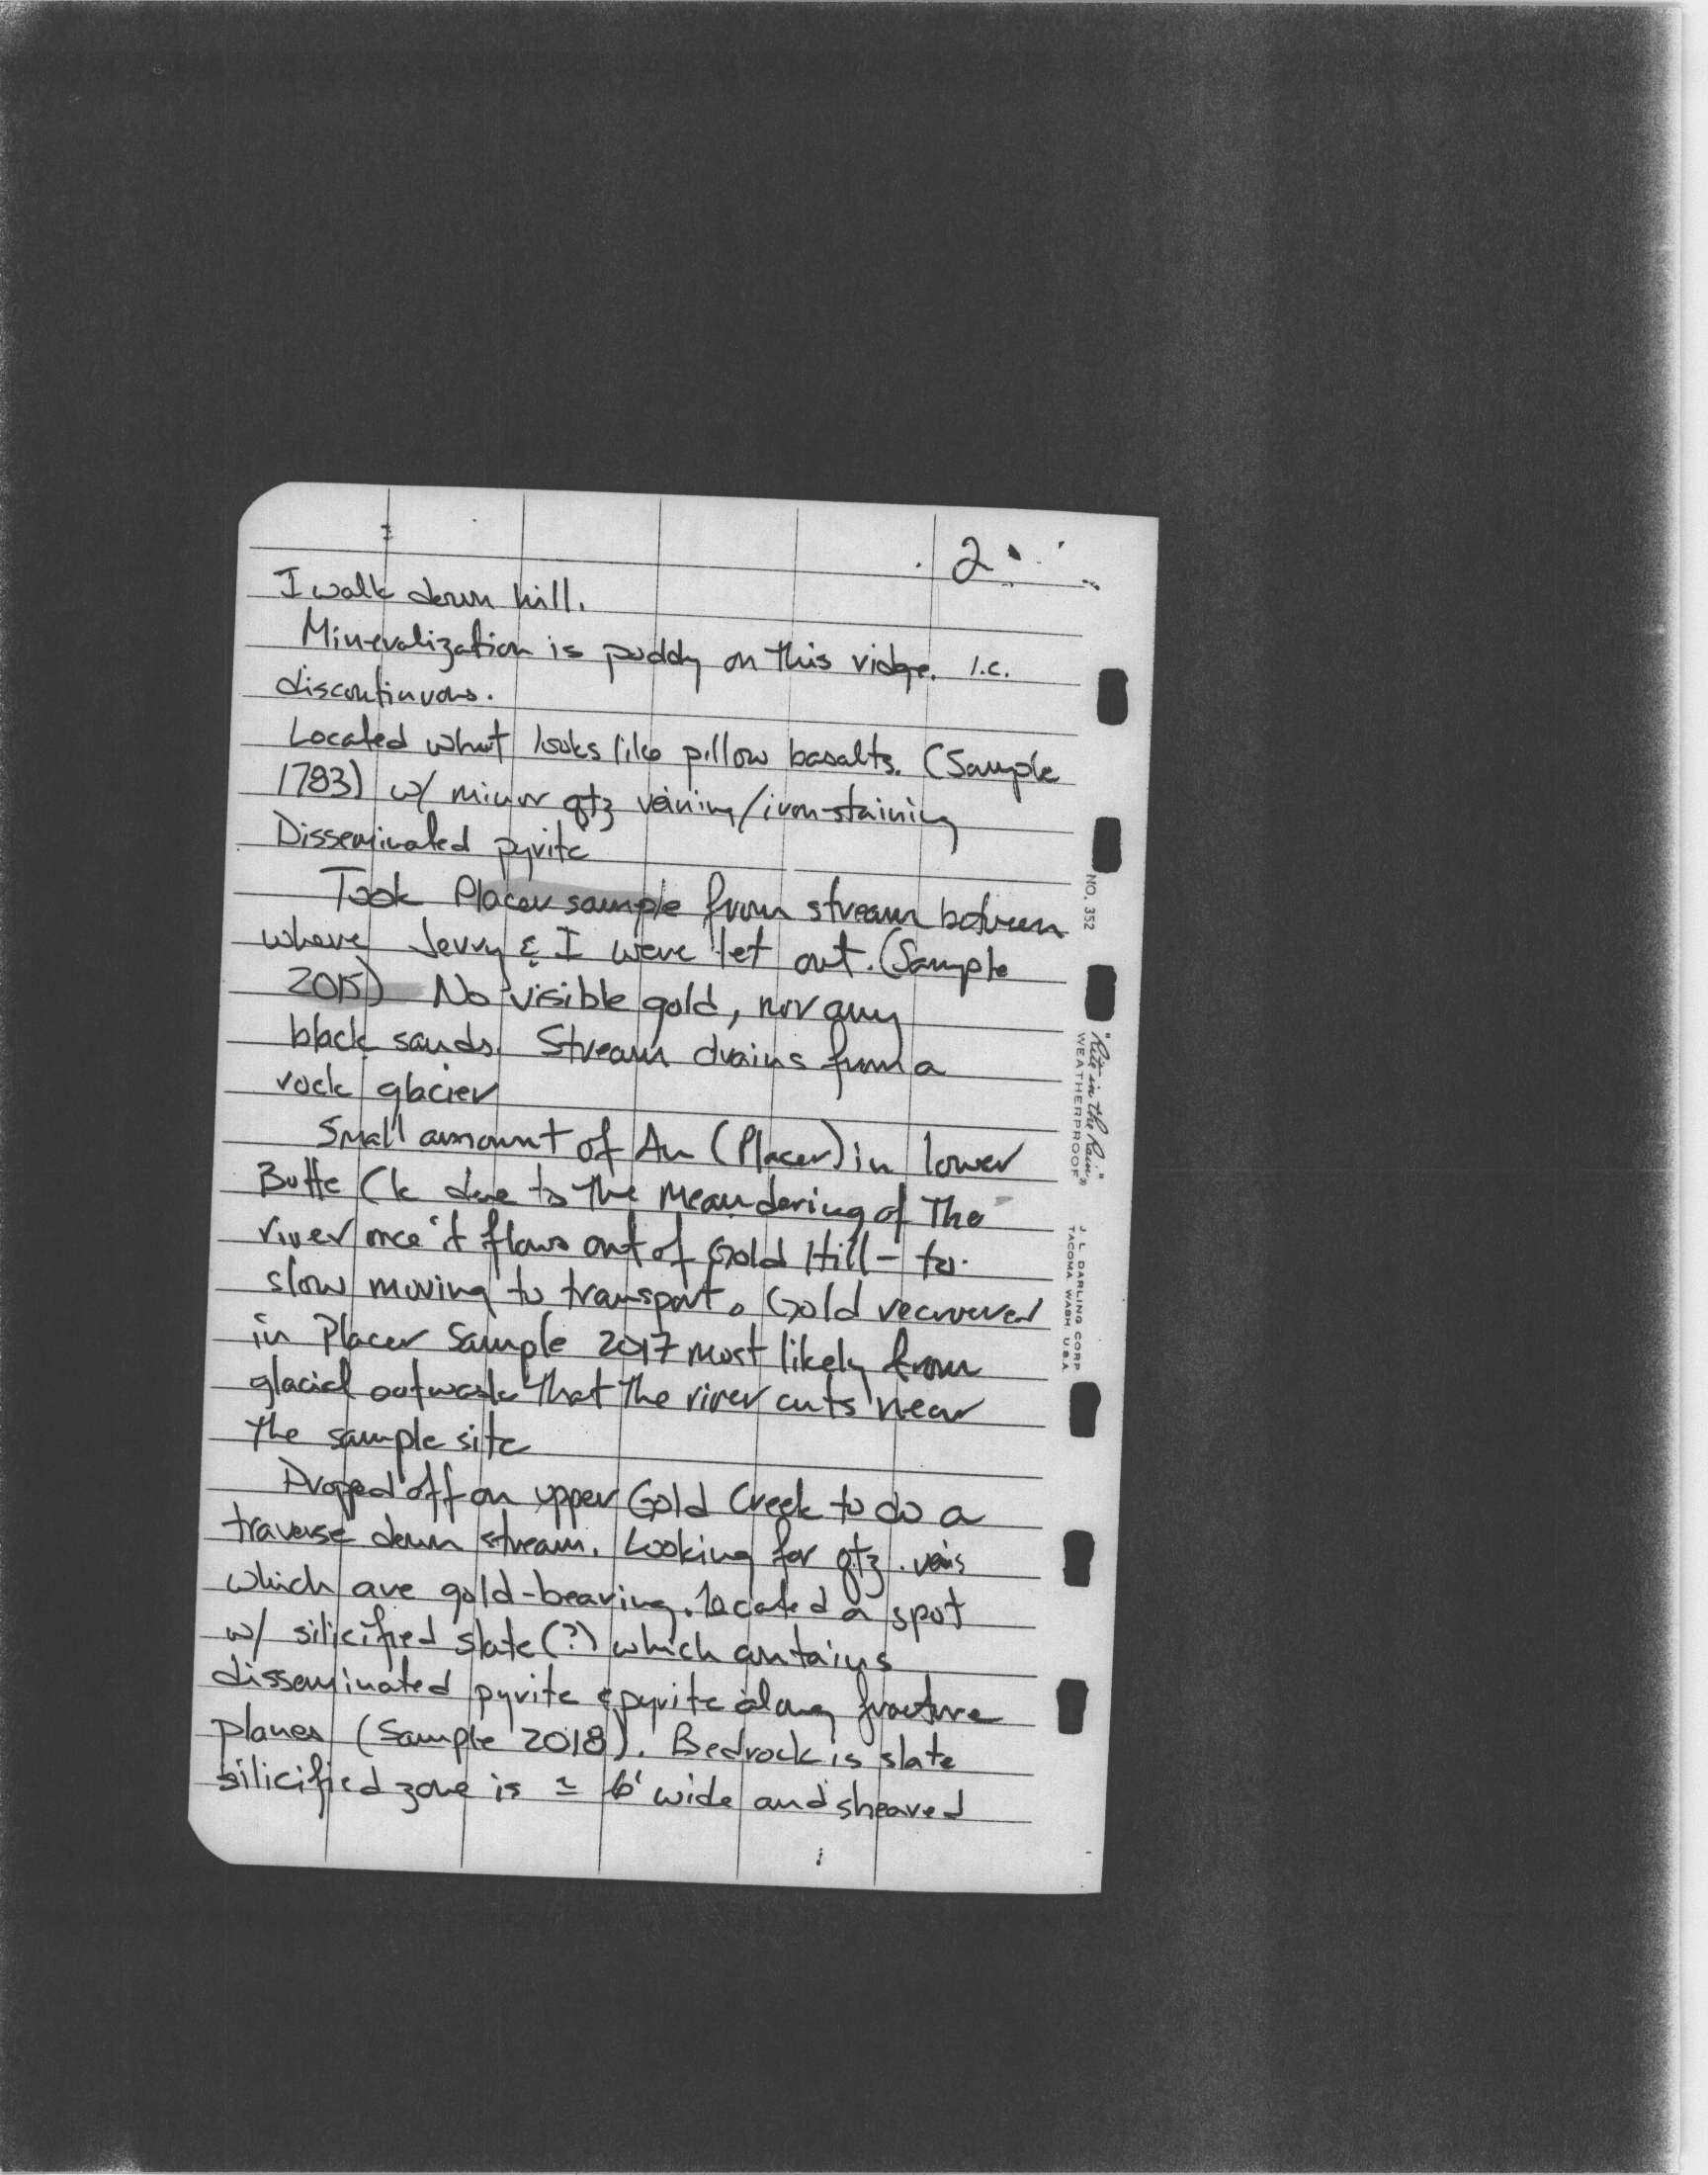 2
I walk down hill.
Mineralization is poddy on this ridge. i.e.
discontinuous.
Located what looks like pillow basalts. (Sample
1783) w/ minor qtz veining/iron-staining
Disseminated pyrite
Took Placer sample from stream between
where Jerry & I were let out. (Sample
2015) No visible gold, nor any
black sands. Stream drains from a
rock glacier
Small amount of Au (Placer) in lower
Butte Ck due to the meandering of the
river once it flows out of Gold Hill - to
slow moving to transport. Gold recovered
in Placer Sample 2017 most likely from
glacial outwash that the river cuts near
the sample site
Droped off on upper Gold Creek to do a
traverse down stream. Looking for qtz. veins
which are gold-bearing. Located a spot
w/ silicified slate (?) which contains
disseminated pyrite & pyrite along fracture
planes (Sample 2018). Bedrock is slate
silicified zone is ≃ 6' wide and sheared
NO. 352
"Rite in the Rain"
WEATHERPROOF
J. L. DARLING CORP
TACOMA WASH U.S.A.